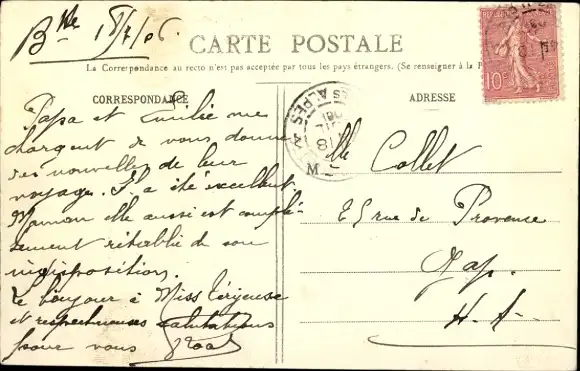 Blle 18/7/06
CARTE POSTALE
La Correspondance au recto n'est pas acceptée par tous les pays étrangers. (Se renseigner à la P
CORRESPONDANCE
ADRESSE
Papa et Emilie me
chargent de vous donner
des nouvelles de leur
voyage. Il a été excellent.
Maman elle aussi est complè-
tement rétablie de son
indisposition.
Le bonjour à Miss
et respectueuses salutations
pour vous
M lle Collet
25 rue de Provence
Gap.
H-A-
10